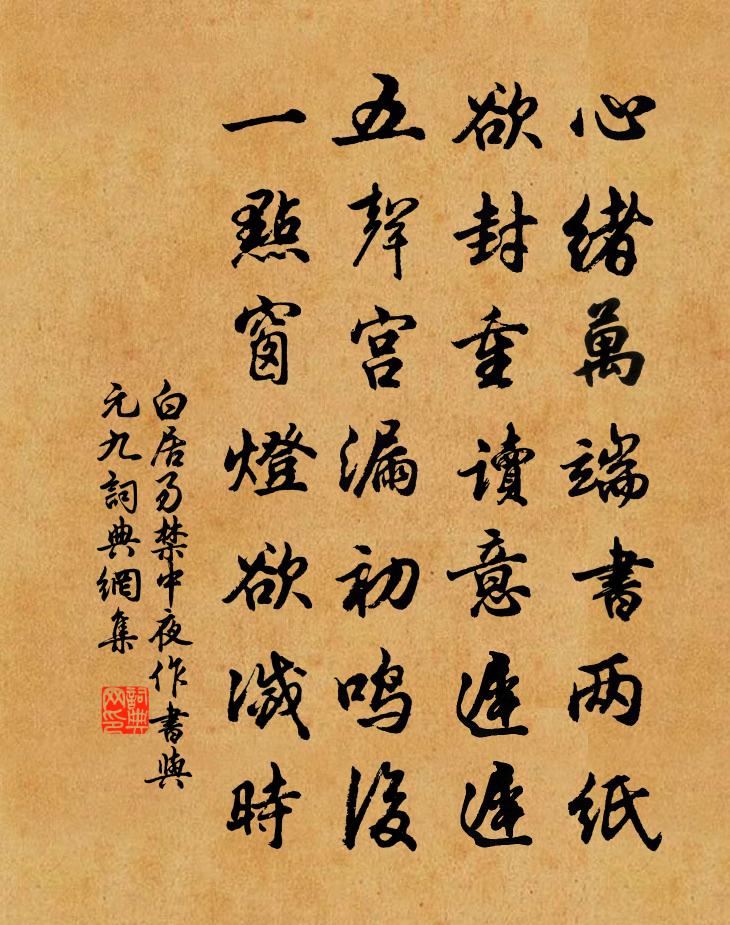 心緒萬端書两紙
欲封重讀意遲遲
五聲宮漏初鳴後
一點窗燈欲滅時
白居易禁中夜作書與
元九詞典網集
詞典网印